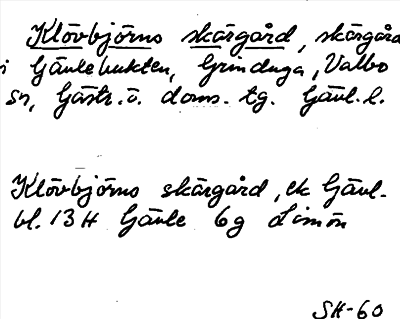 Klövbjörns skärgård, skärgård
i Gävlebukten, Grinduga, Valbo
sn, Gästr. ö. doms. tg. Gävl. l.
Klövbjörns skärgård, ek Gävl.
bl. 13 H Gävle 6g Limön
SH-60